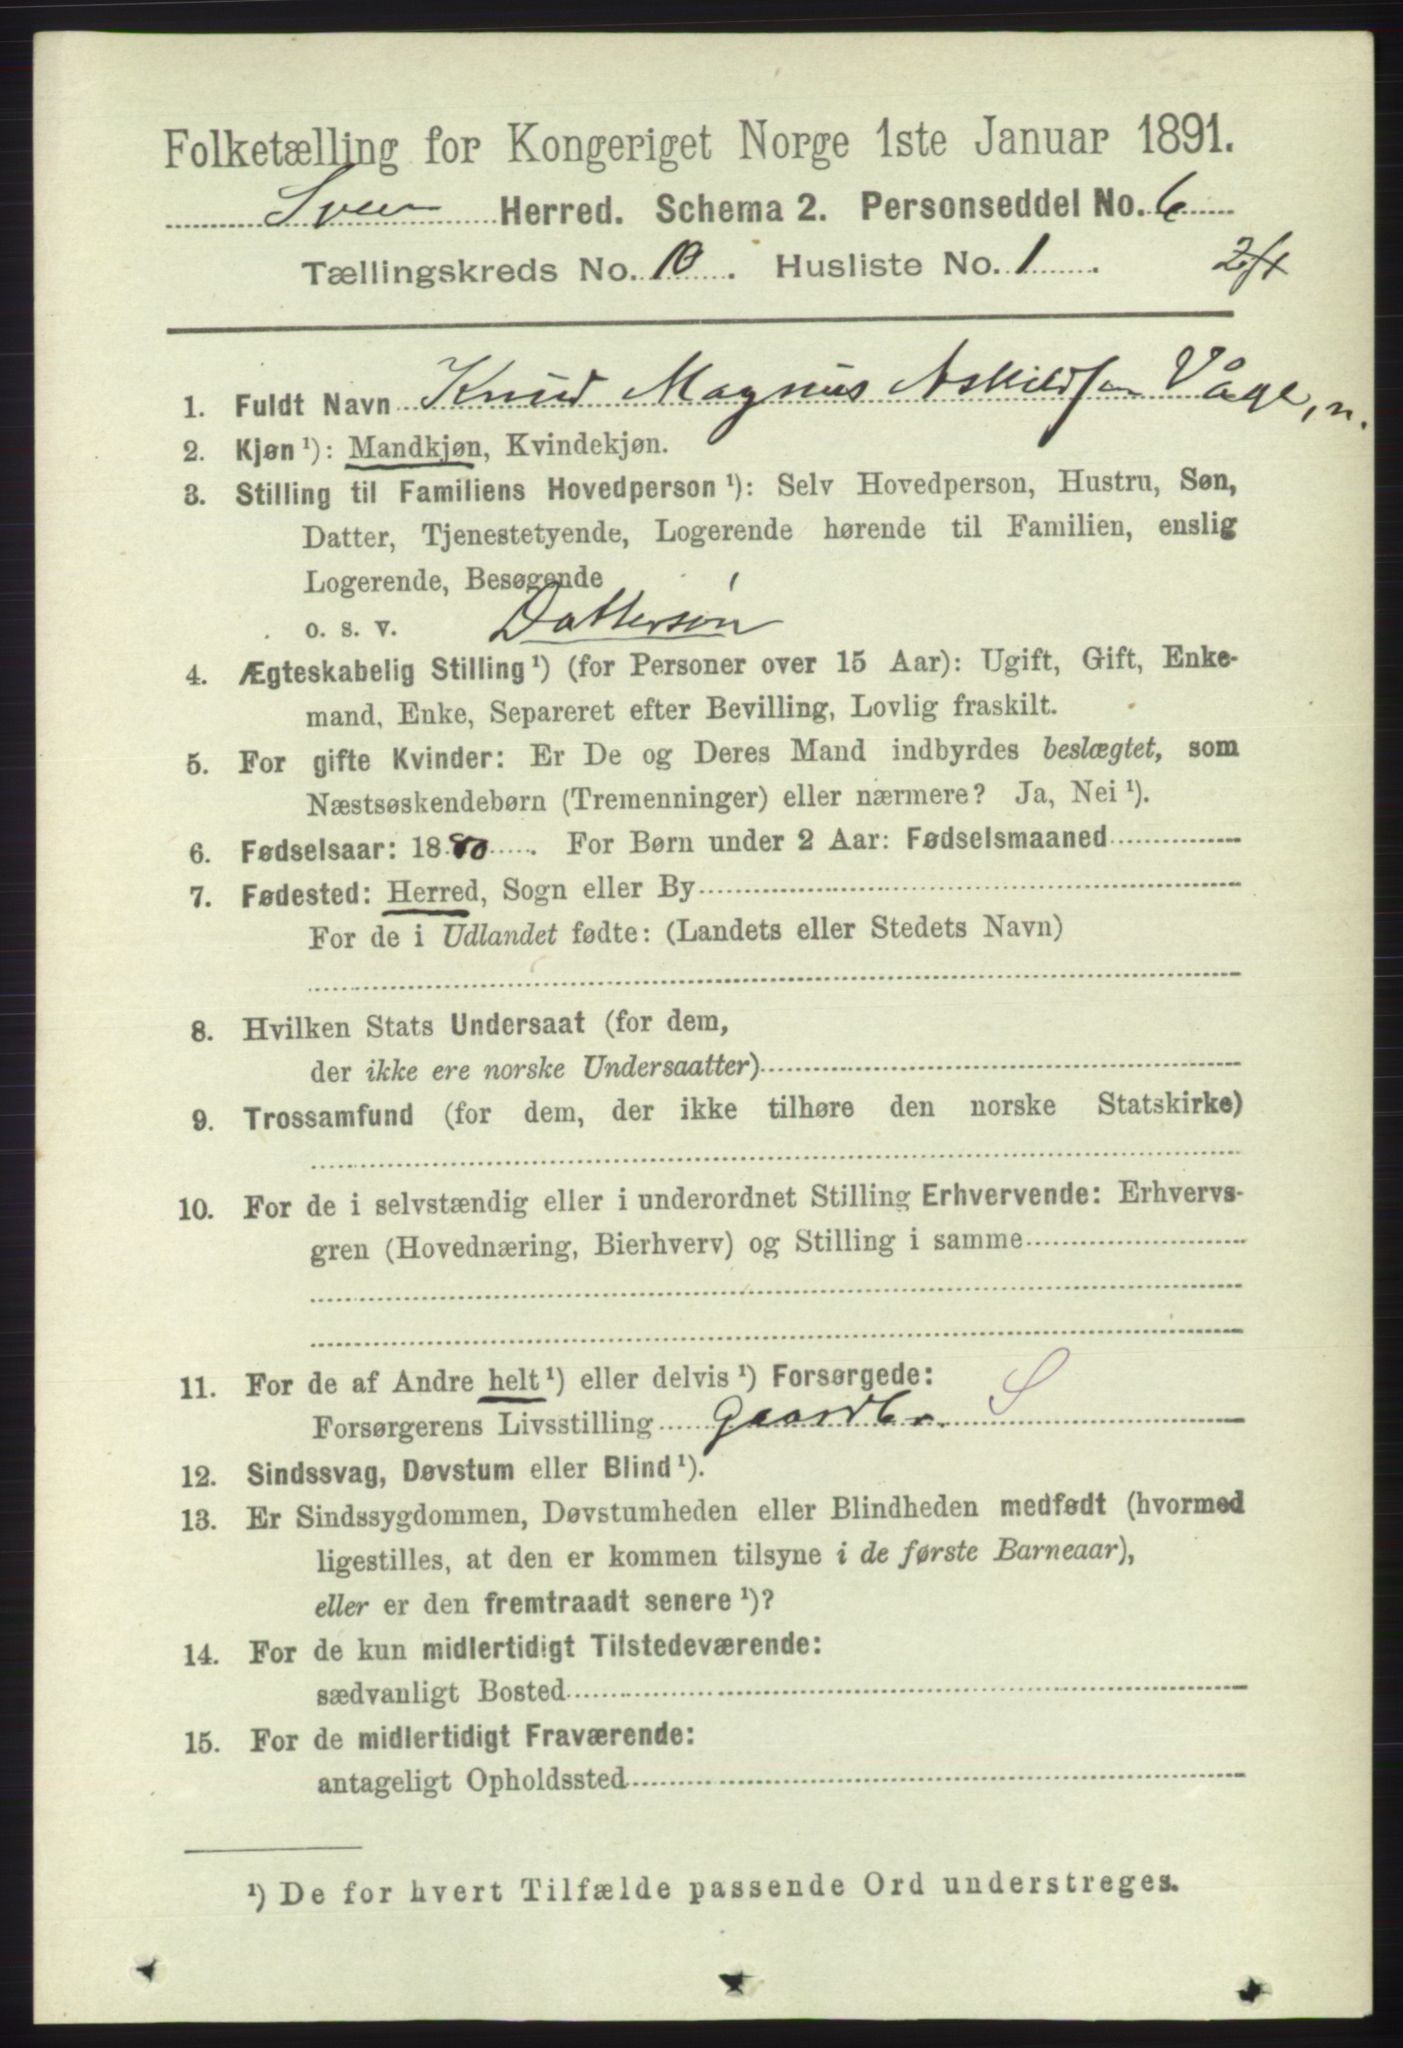 Folketælling for Kongeriget Norge 1ste Januar 1891.
Sveen Herred. Schema 2. Personseddel No. 6
Tællingskreds No. 10. Husliste No. 1.
1. Fuldt Navn Knud Magnus Askildsen Våge, n.
2. Kjøn ¹): Mandkjøn, Kvindekjøn.
3. Stilling til Familiens Hovedperson ¹): Selv Hovedperson, Hustru, Søn,
Datter, Tjenestetyende, Logerende hørende til Familien, enslig
Logerende, Besøgende
o. s. v. Dattersøn
4. Ægteskabelig Stilling ¹) (for Personer over 15 Aar): Ugift, Gift, Enke-
mand, Enke, Separeret efter Bevilling, Lovlig fraskilt.
5. For gifte Kvinder: Er De og Deres Mand indbyrdes beslægtet, som
Næstsøskendebørn (Tremenninger) eller nærmere? Ja, Nei ¹).
6. Fødselsaar: 1880. For Børn under 2 Aar: Fødselsmaaned
7. Fødested: Herred, Sogn eller By
For de i Udlandet fødte: (Landets eller Stedets Navn)
8. Hvilken Stats Undersaat (for dem,
der ikke ere norske Undersaatter)
9. Trossamfund (for dem, der ikke tilhøre den norske Statskirke)
10. For de i selvstændig eller i underordnet Stilling Erhvervende: Erhvervs-
gren (Hovednæring, Bierhverv) og Stilling i samme
11. For de af Andre helt ¹) eller delvis ¹) Forsørgede:
Forsørgerens Livsstilling Gaardbr. S
12. Sindssvag, Døvstum eller Blind ¹).
13. Er Sindssygdommen, Døvstumheden eller Blindheden medfødt (hvormed
ligestilles, at den er kommen tilsyne i de første Barneaar),
eller er den fremtraadt senere ¹)?
14. For de kun midlertidigt Tilstedeværende:
sædvanligt Bosted
15. For de midlertidigt Fraværende:
antageligt Opholdssted
¹) De for hvert Tilfælde passende Ord understreges.